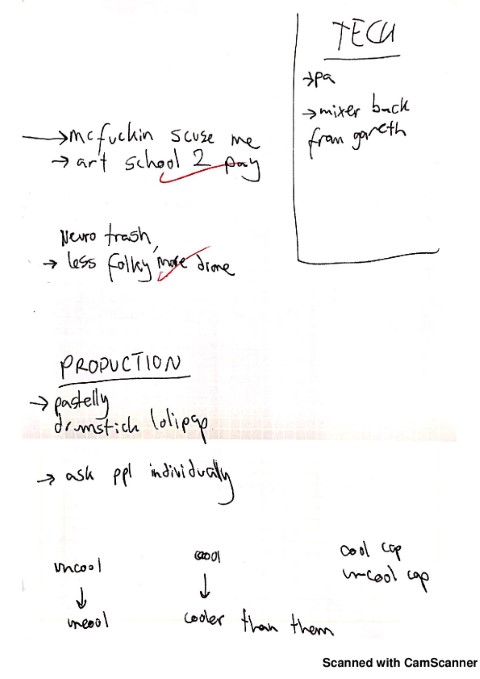 TECH
→pa
→mixer back
from gareth
→mcfuckin scuse me
→ art school 2 pay
Neuro trash,
→ less folky, more drone
PRODUCTION
→ pastelly
drumstick lolipop
→ ask ppl individually
uncool
↓
uncool
cool
↓
cooler than them
cool cop
uncool cop
Scanned with CamScanner